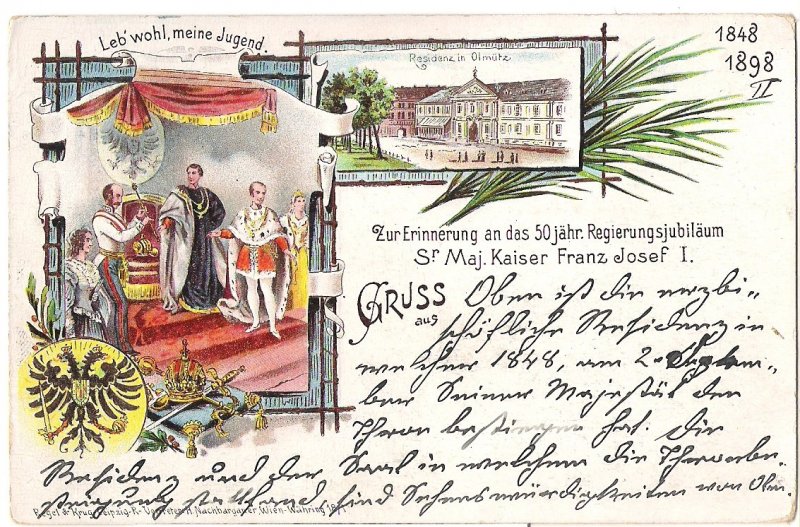 Leb' wohl, meine Jugend.
Residenz in Olmütz
1848
1898
II
Zur Erinnerung an das 50 jähr. Regierungsjubiläum
Sr Maj. Kaiser Franz Josef I.
GRUSS
aus
Oben ist die erzbi„
schöfliche Residenz in
welcher 1848, am 2
ber Seiner Majestät den
Thron bestiegen hat. Die
Residenz und der Saal in welchem die Thronbe„
steigung stattfand, sind Sehenswürdigkeiten von Olm.
Regel & Krug, Leipzig-R. Vertreter H. Nachbargauer, Wien-Währing